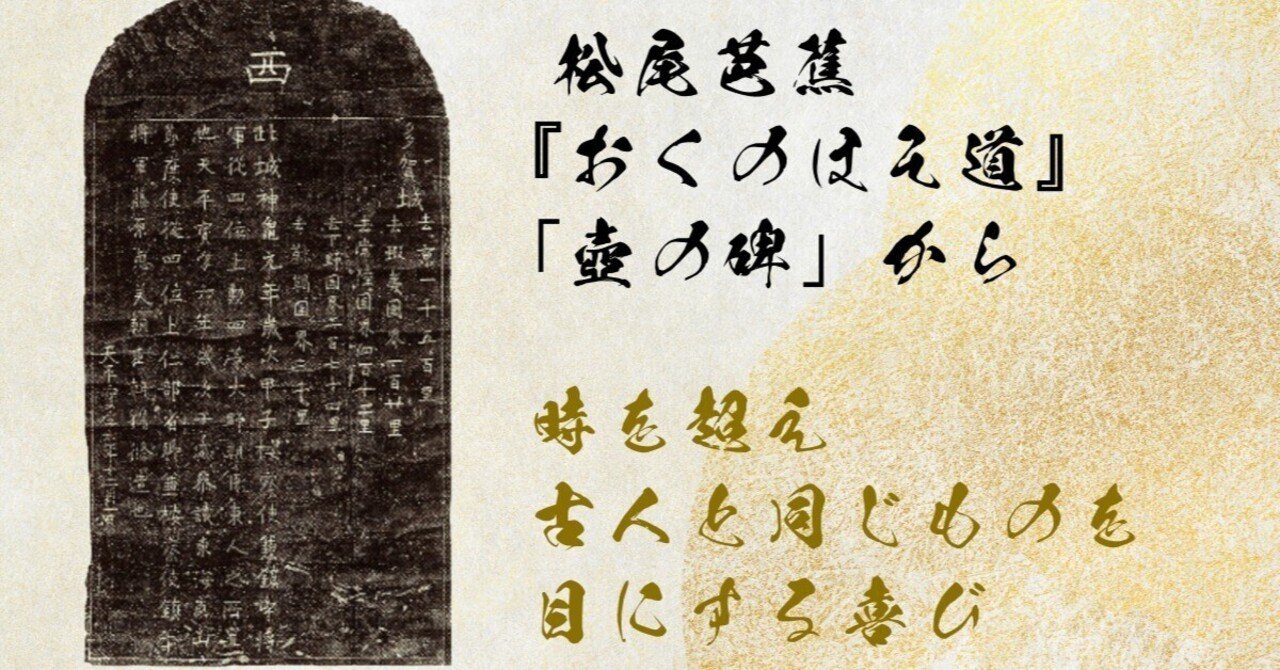 西
多賀城
去京一千五百里
去蝦夷國界一百廿里
去常陸國界四百十二里
去下野國界二百七十四里
去靺鞨國界三千里
此城神龜元年歲次甲子按察使兼鎭守將
軍從四位上勳四等大野朝臣東人之所置
也天平寶字六年歲次壬寅參議東海東山
節度使從四位上仁部省卿兼按察使鎭守
將軍藤原惠美朝臣朝獦修造也
天平寶字六年十二月一日
松尾芭蕉
『おくのほそ道』
「壺の碑」から
時を超え
古人と同じものを
目にする喜び